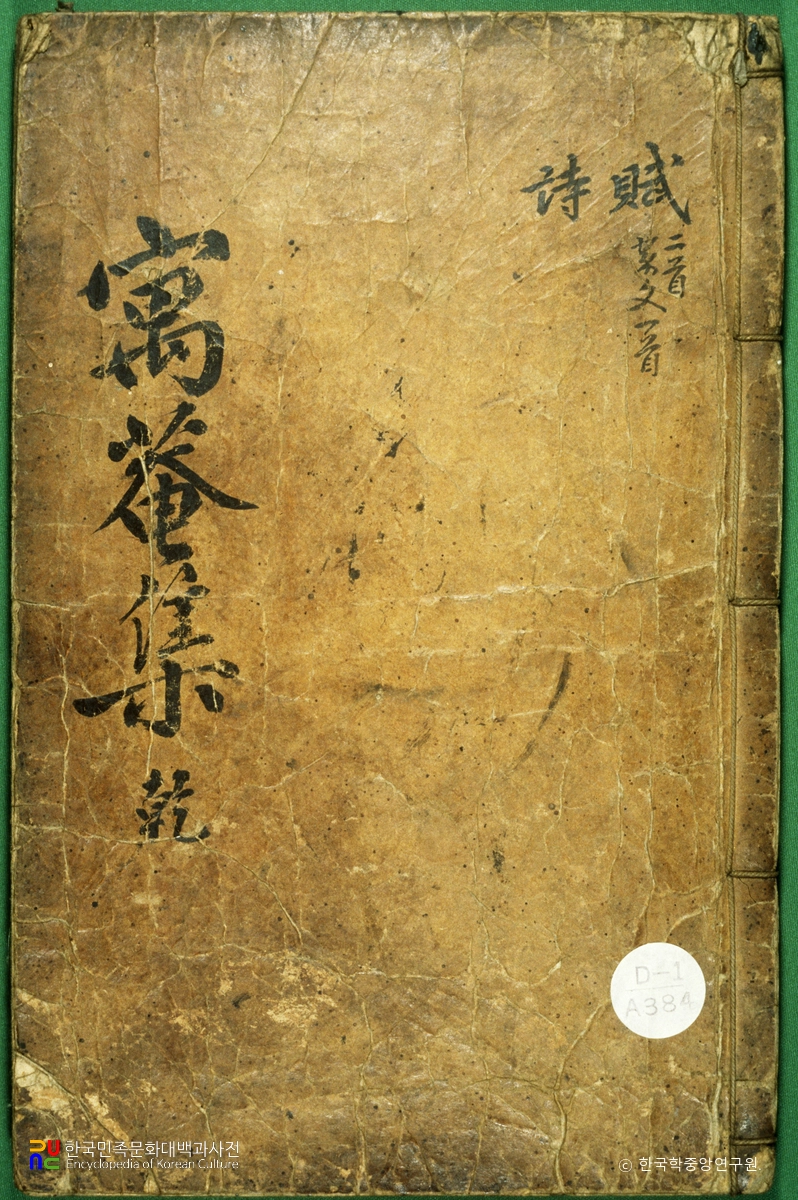 賦
二首
祭文一首
詩
寓菴集 乾
D-1
A384
한국민족문화대백과사전
Encyclopedia of Korean Culture
© 한국학중앙연구원